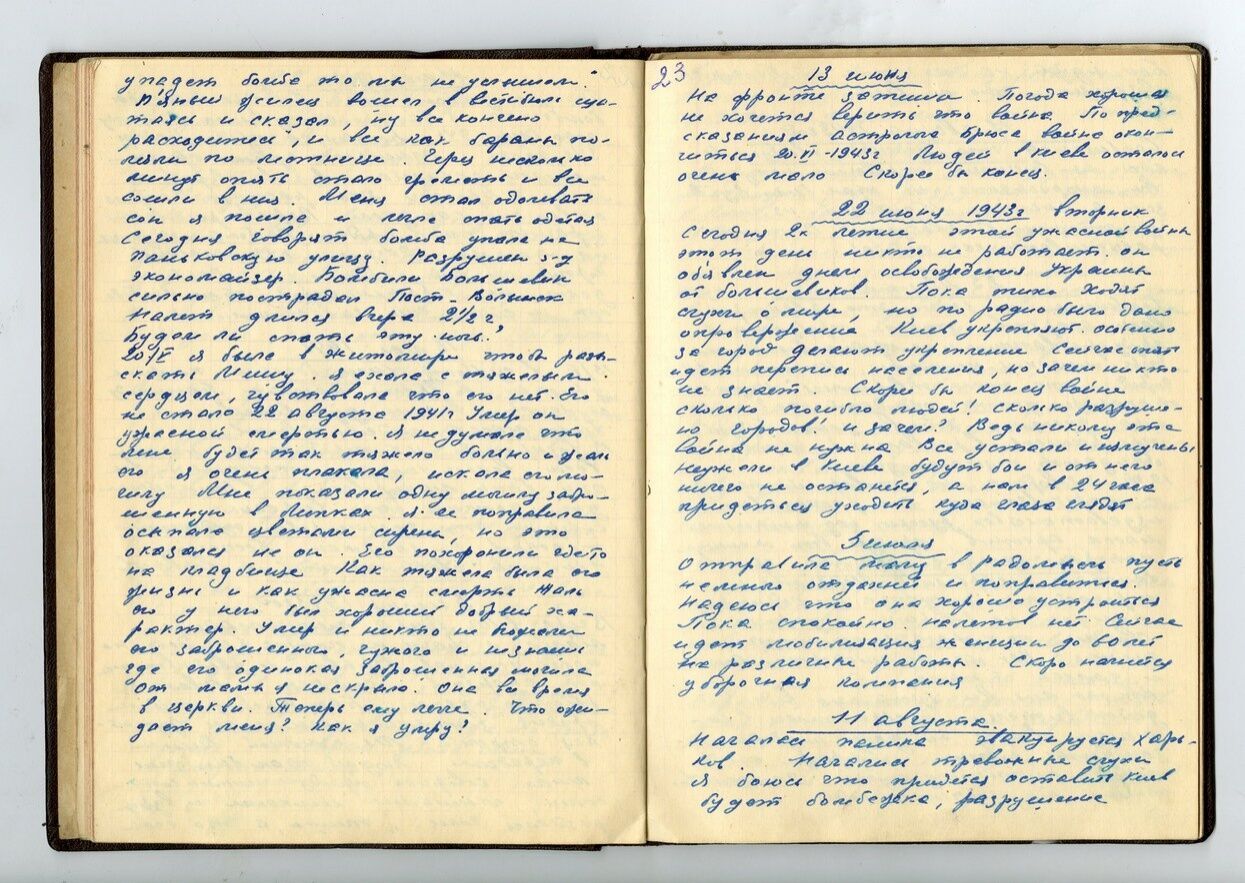 упадет бомба то мы не услышим".
Пьяный жилец вошел в вестибюль ша-
таясь и сказал, ну все кончено
расходитесь, и все как бараны по-
лезли по лестнице. Через несколько
минут опять стало греметь и все
сошли в низ. Меня стал одолевать
сон я пошла и легла спать одетая
Сегодня говорят бомба упала на
Паньковскую улицу. Разрушен з-д
экономайзер. Бомбили большевики
сильно пострадал Пост-Волынск
Налет длился вчера 2 1/2 г
Будем ли спать эту ночь?
20/V я была в Житомире чтобы разы-
скать Мишу. Я ехала с тяжелым
сердцем, чувствовала что его нет. Его
не стало 22 августа 1941г Умер он
ужасной смертью. Я не думала что
мне будет так тяжело больно и жаль
его Я очень плакала, искала его мо-
гилу Мне показали одну могилу забро-
шенную в Липках. Я ее поправила
осыпала цветами сирени, но это
оказался не он Его похоронили где то
на кладбище Как тяжела была его
жизнь и как ужасна смерть Жаль
его у него был хороший добрый ха-
рактер. Умер и никто не пожалел
его заброшенного, чужого и не знаем
где его одинокая заброшенная могила
От мамы я не скрыла. Она во время
в церкви. Теперь ему легче. Что ожи-
дает меня? Как я умру?
23
13 июня
На фронте затишье. Погода хорошая
не хочется верить что война. По пред-
сказаниям астролога Брюса война окон-
читься 20.VI-1943г Людей в Киеве осталось
очень мало Скорее бы конец.
22 июня 1943г вторник
Сегодня 2х летие этой ужасной войны
этот день никто не работает. он
объявлен днем освобождения Украины
от большевиков. Пока тихо ходят
слухи о мире, но по радио было дано
опровержение Киев укрепляют. особенно
за город делают укрепление Сейчас опять
идет перепись населения, но зачем никто
не знает. Скорее бы конец войне
сколько погибло людей! Сколько разруше-
но городов! и зачем? Ведь никому эта
война не нужна Все устали и измучены
неужели в Киеве будут бои и от него
ничего не останется, а нам в 24 часа
придеться уходить куда глаза глядят
5 июля
Отправила маму в Радомысль пусть
немного отдохнет и поправится.
Надеюсь что она хорошо устроиться
Пока спокойно налетов нет Сейчас
идет мобилизация женщин до 60 лет
на различные работы. Скоро начнется
уборочная компания
11 августа
Началась паника эвакуируется Харь-
ков. Начались тревожные слухи
Я боюсь что придется оставить Киев
будет бомбежка, разрушение